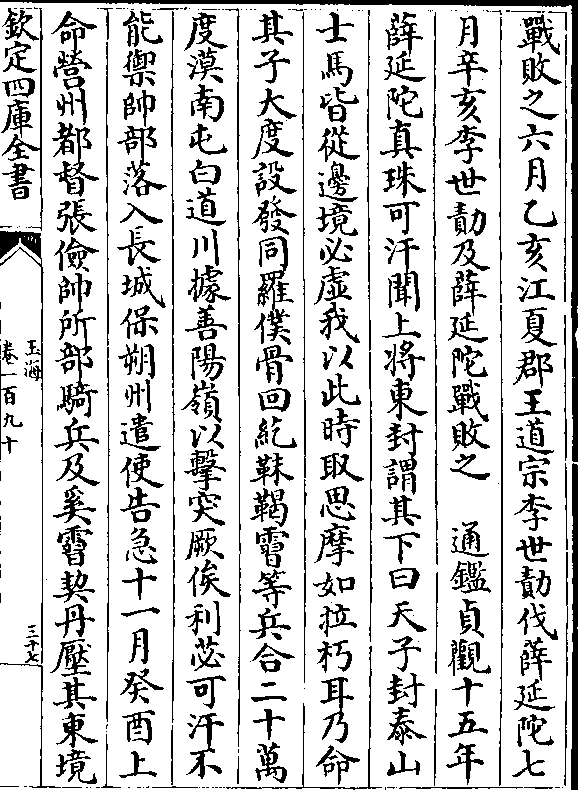 戰敗之六月乙亥江夏郡王道宗李世勣伐薛延陀七
月辛亥李世勣及薛延陀戰敗之　通鑑貞觀十五年
薛延陀真珠可汗聞上將東封謂其下曰天子封泰山
士馬皆從邊境必虛我以此時取思摩如拉朽耳乃命
其子大度設發同羅僕骨回紇靺鞨霫等兵合二十萬
度漠南屯白道川據善陽嶺以擊突厥俟利苾可汗不
能禦帥部落入長城保朔州遣使告急十一月癸酉上
命營州都督張儉帥所部騎兵及奚霫契丹壓其東境
欽定四庫全書
玉海
卷一百九十
三十七